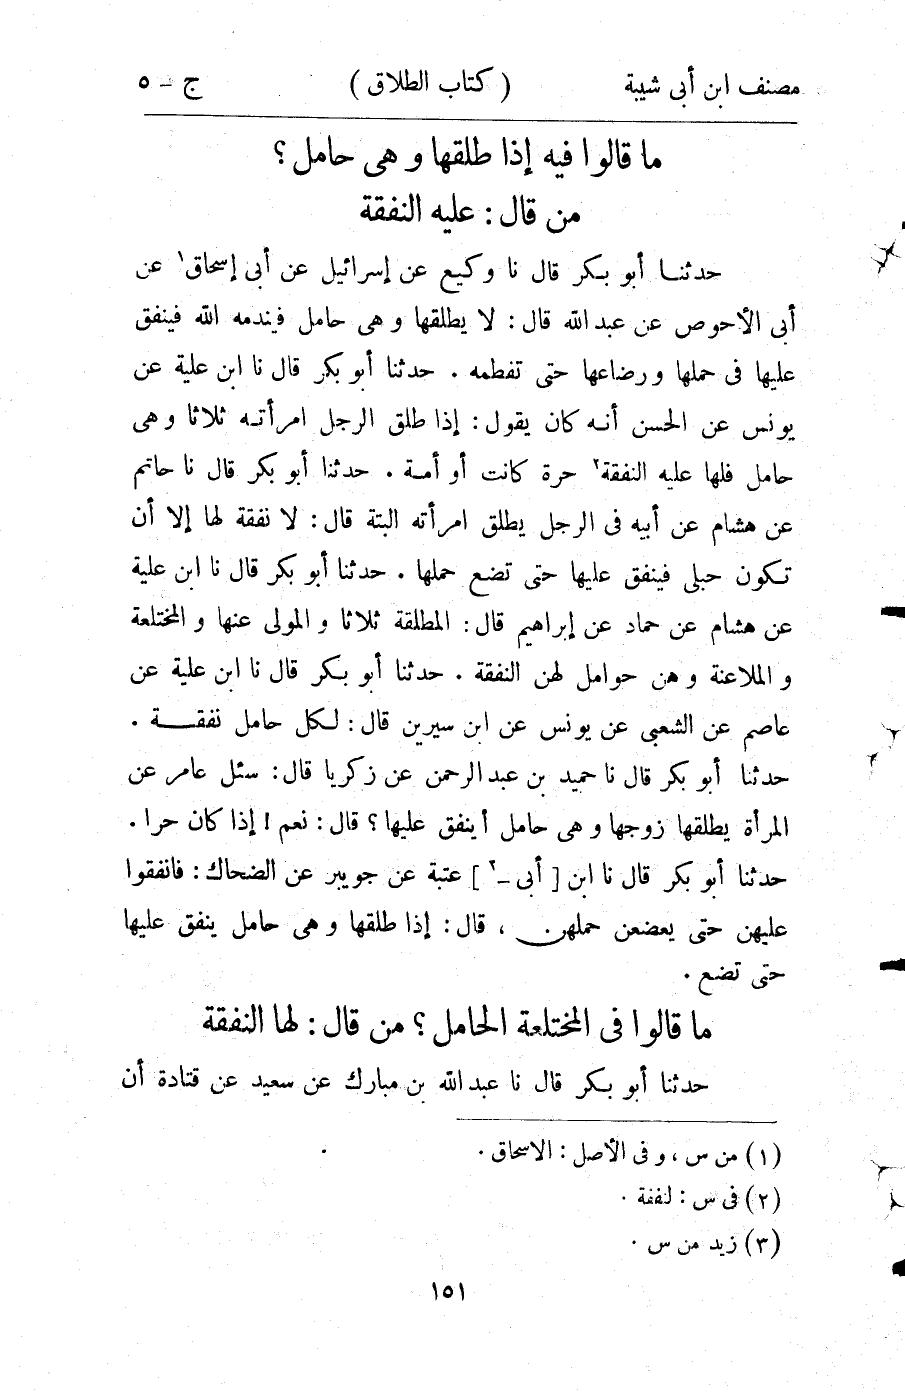 مصنف ابن أبى شيبة ( كتاب الطلاق ) ج - ٥
ما قالوا فيه إذا طلقها و هى حامل ؟
من قال : عليه النفقة
حدثنا أبو بكر قال نا وكيع عن إسرائيل عن أبى إسحاق١ عن
أبى الأحوص عن عبد الله قال : لا يطلقها و هى حامل فيندمه الله فينفق
عليها فى حملها و رضاعها حتى تفطمه . حدثنا أبو بكر قال نا ابن علية عن
يونس عن الحسن أنه كان يقول : إذا طلق الرجل امرأته ثلاثا و هى
حامل فلها عليه النفقة٢ حرة كانت أو أمة . حدثنا أبو بكر قال نا حاتم
عن هشام عن أبيه فى الرجل يطلق امرأته البتة قال : لا نفقة لها إلا أن
تكون حبلى فينفق عليها حتى تضع حملها . حدثنا أبو بكر قال نا ابن علية
عن هشام عن حماد عن إبراهيم قال : المطلقة ثلاثا و المولى عنها و المختلعة
و الملاعنة و هن حوامل لهن النفقة . حدثنا أبو بكر قال نا ابن علية عن
عاصم عن الشعبى عن يونس عن ابن سيرين قال : لكل حامل نفقة .
حدثنا أبو بكر قال نا حميد بن عبد الرحمن عن زكريا قال : سئل عامر عن
المرأة يطلقها زوجها و هى حامل أينفق عليها ؟ قال : نعم ! إذا كان حرا .
حدثنا أبو بكر قال نا ابن [ أبى -٣ ] عتبة عن جويبر عن الضحاك : فانفقوا
عليهن حتى يعضعن حملهن ، قال : إذا طلقها و هى حامل ينفق عليها
حتى تضع .
ما قالوا فى المختلعة الحامل ؟ من قال : لها النفقة
حدثنا أبو بكر قال نا عبد الله بن مبارك عن سعيد عن قتادة أن
(١) من س ، و فى الأصل : الاسحاق .
(٢) فى س : لنفقة .
(٣) زيد من س .
١٥١